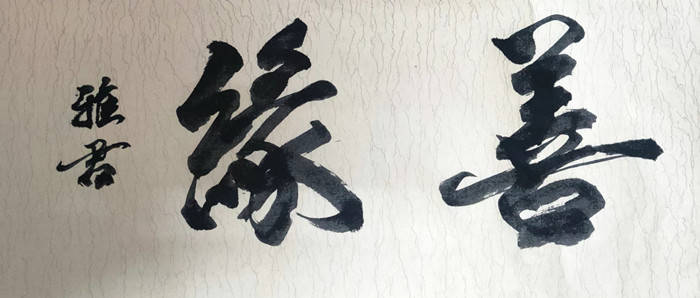 善缘
雅君